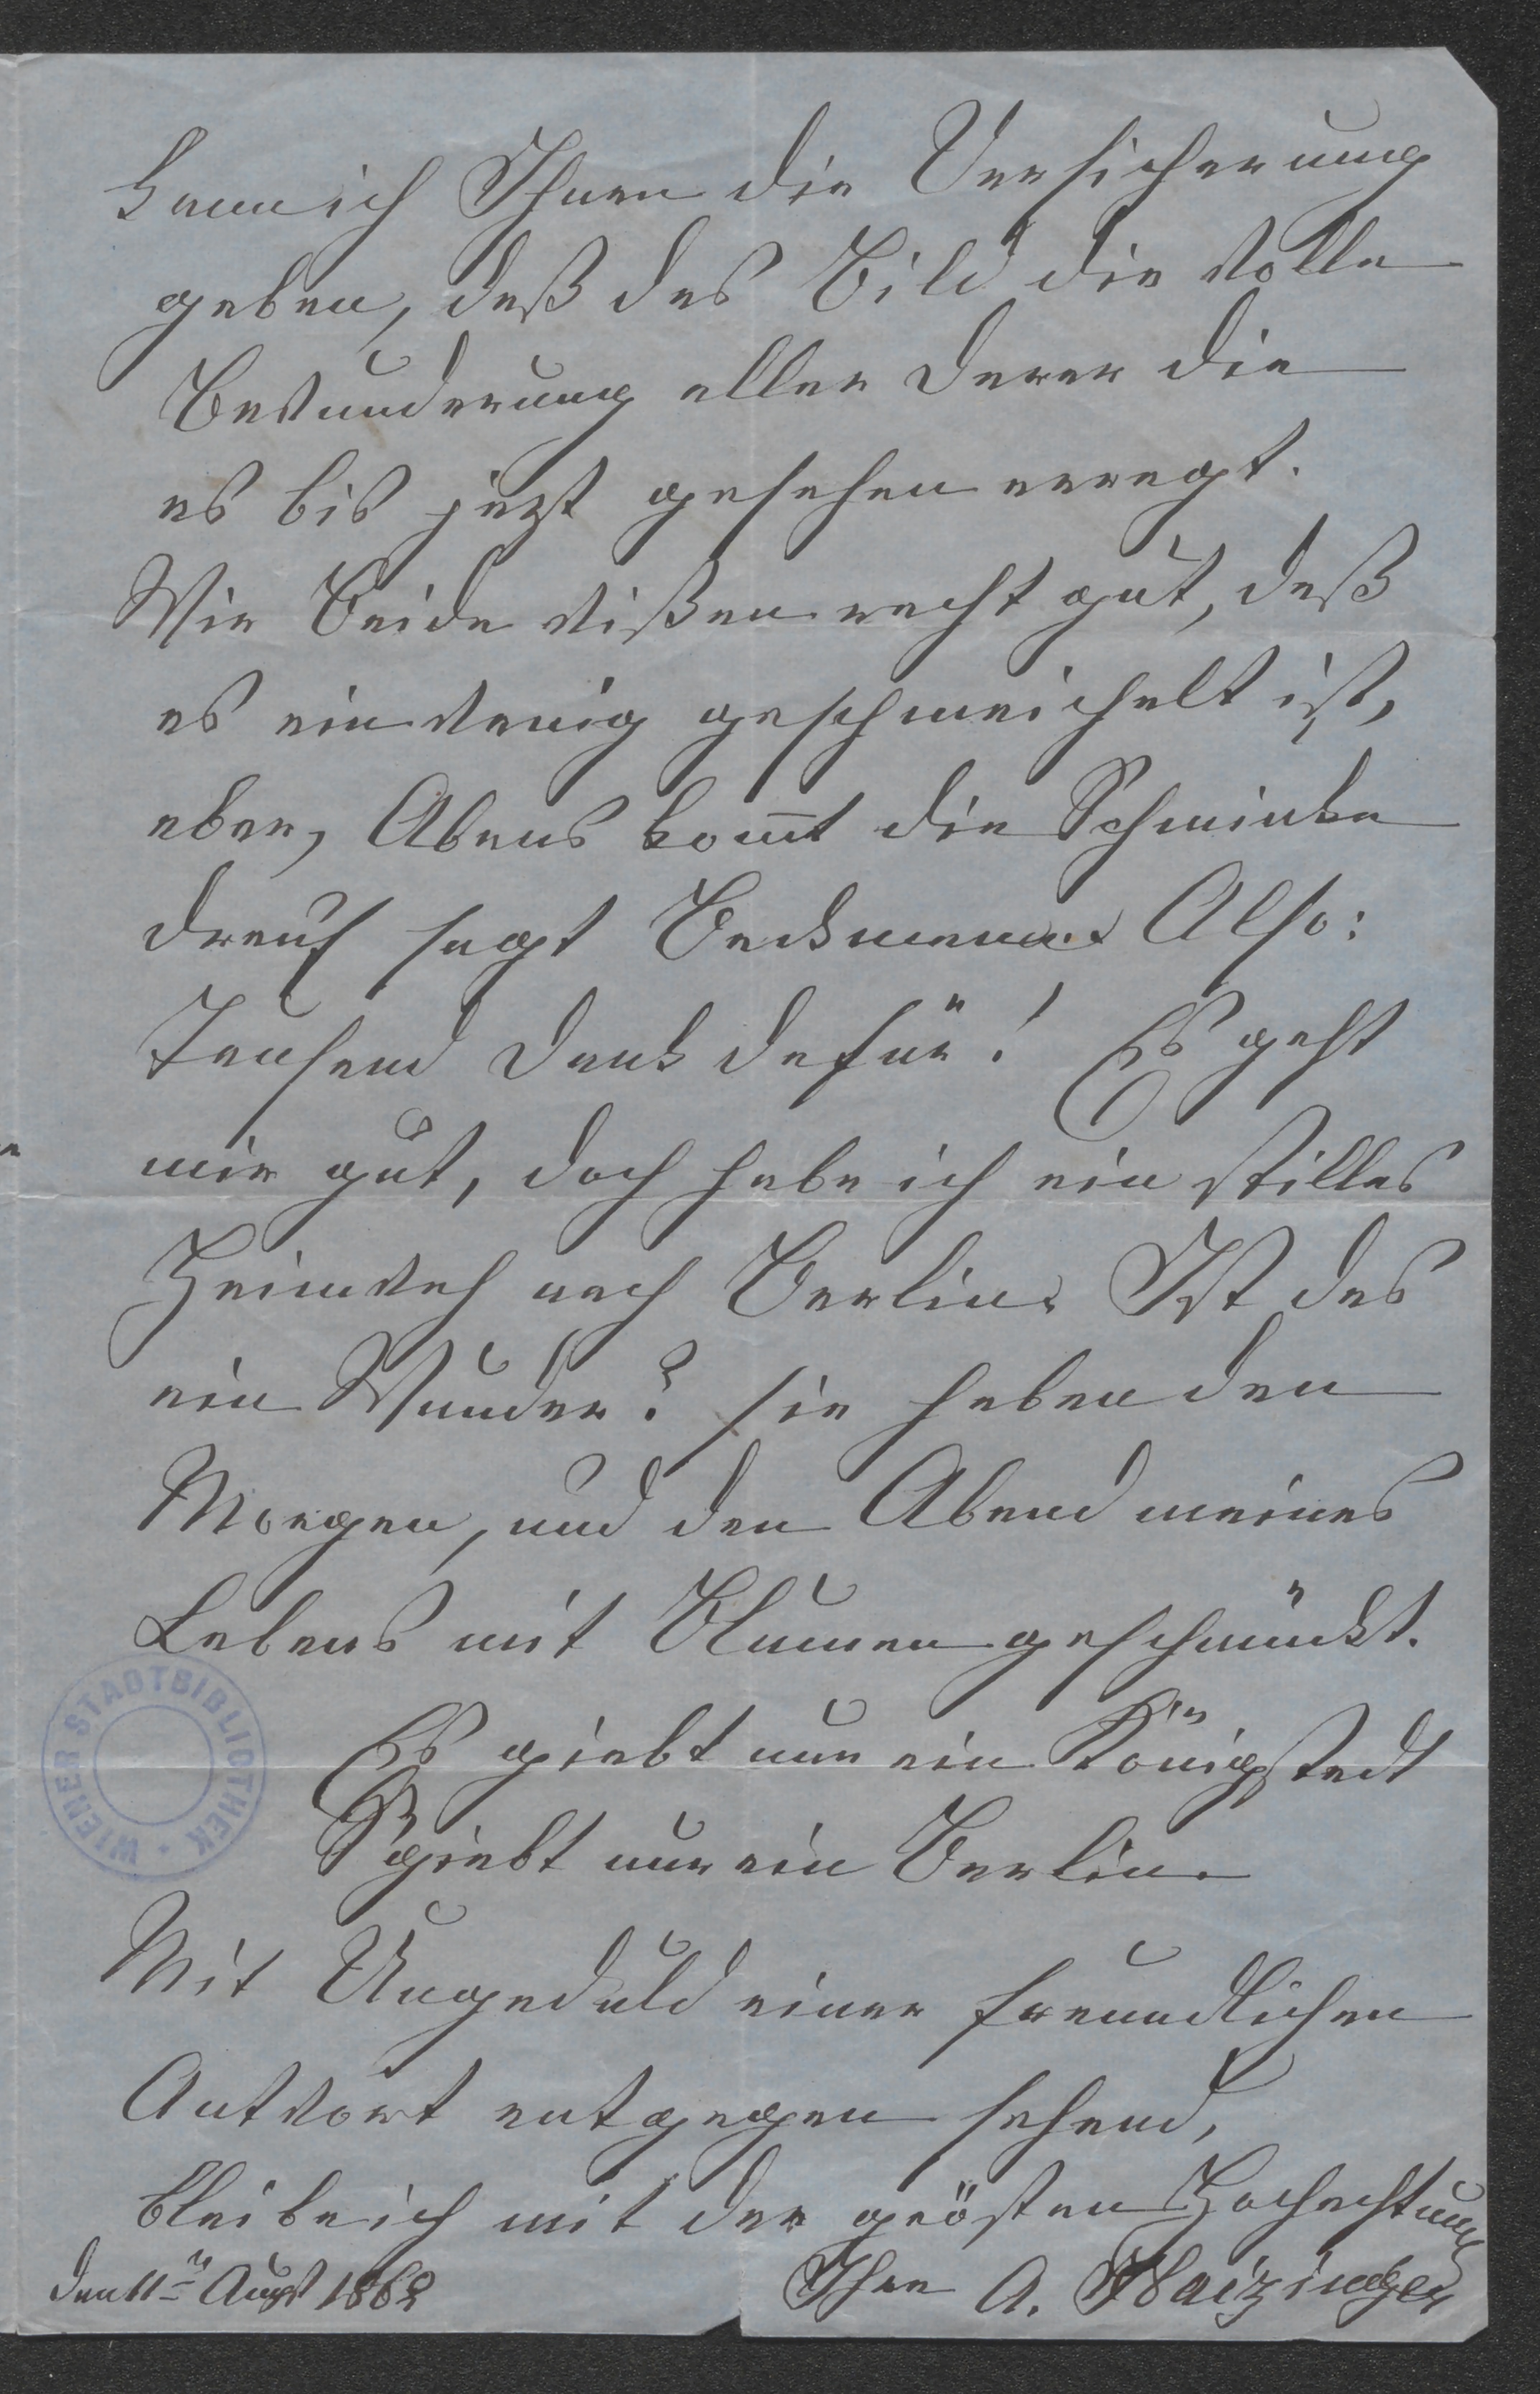 kann ich Ihnen die Versicherung
geben, daß das Bild die volle
Bewunderung aller derer die
es bis jezt gesehen erregt.
Wir Beide wißen recht gut, daß
es ein wenig geschmeichelt ist,
aber, Abens kom̅t die Schminke
drauf sagt Beckmann. Also:
Tausend Dank dafür! Es geht
mir gut, doch habe ich ein stilles
Heimweh nach Berlin. Ist das
ein Wunder? sie haben den
Morgen, und den Abend meines
Lebens mit Blumen geschmückt.
Es giebt nur ein Königstadt
S'giebt nur ein Berlin.
Mit Ungeduld einer freundlichen
Antwort entgegen sehend,
bleibe ich mit der grösten Hochachtung
den 11n Augst 1862
Ihre A. Haizinger
WIENER STADTBIBLIOTHEK